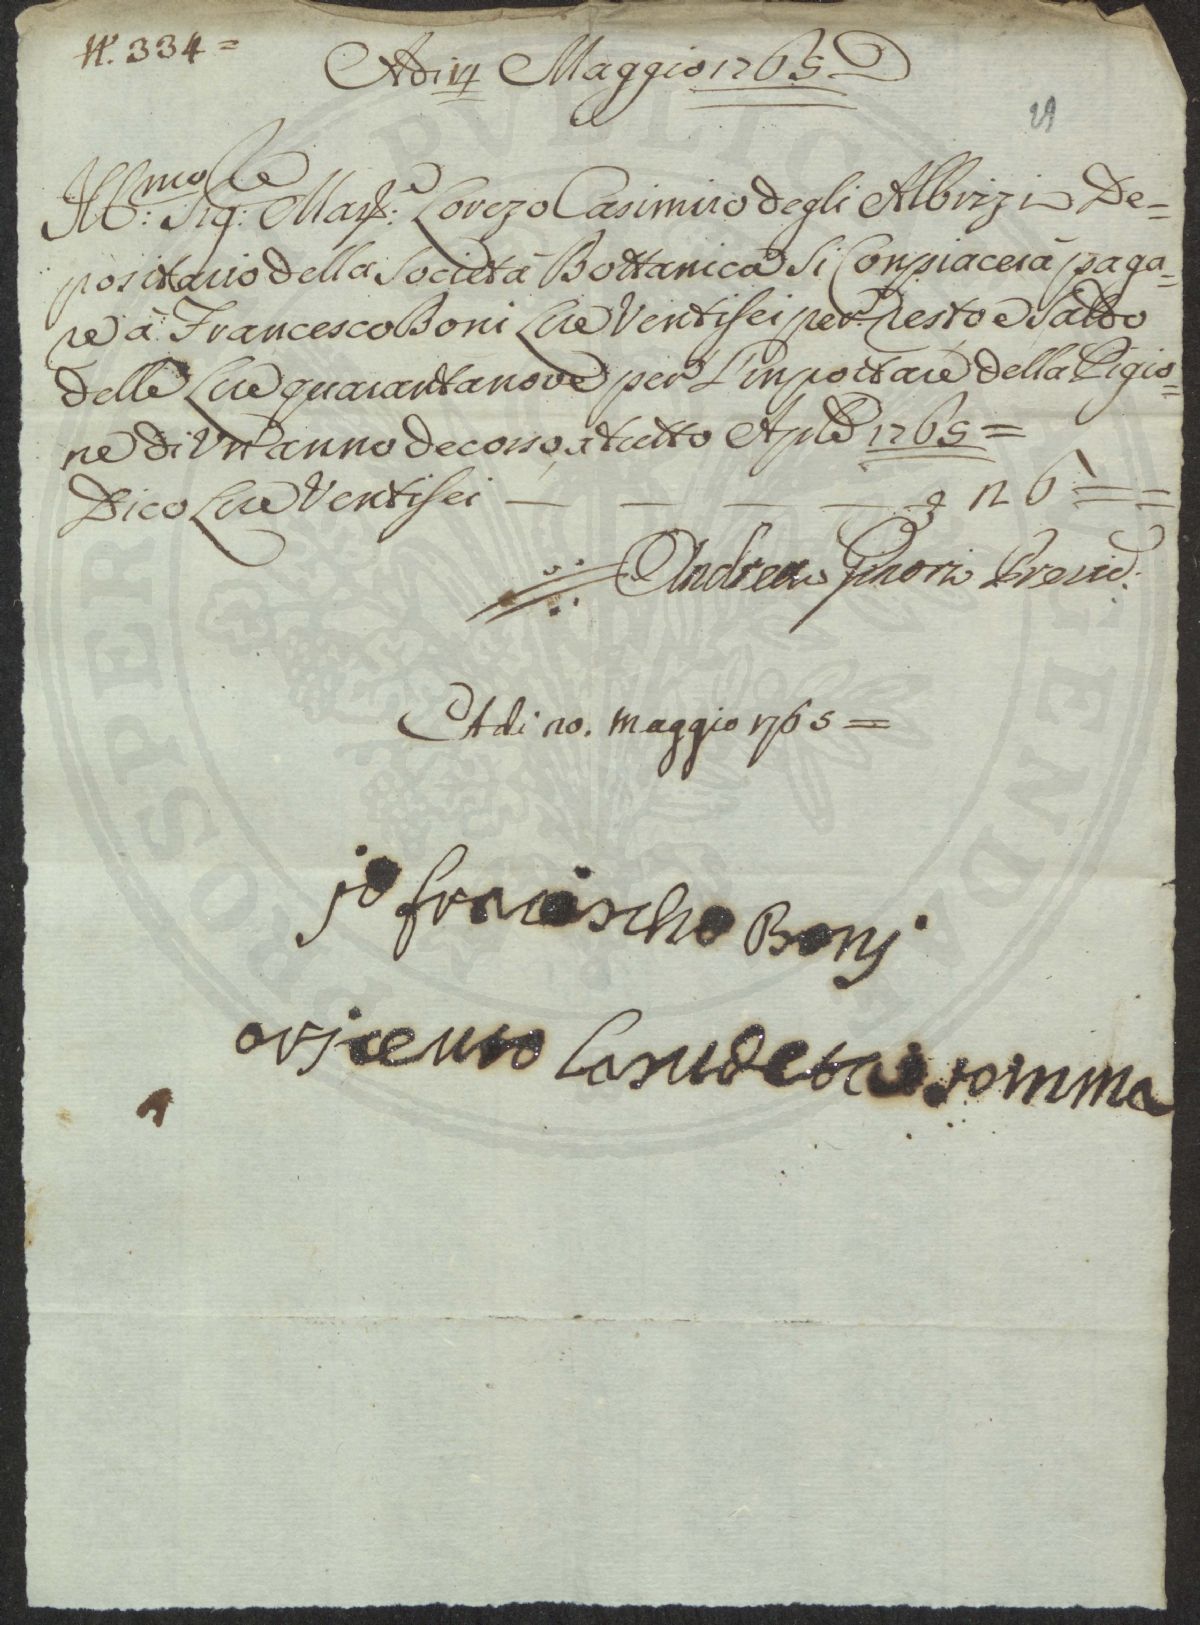 N. 334=
Adi 17 Maggio 1765
Ill:mo Sig: Mar: Lorezo Casimiro degli Albizzi De=
positario della Società Bottanica Si Conpiacerà paga=
re à Francesco Boni Lire Ventisei per resto e Saldo
delle Lire quarantanove per l'inportare della Pigio=
ne di Un'anno decorso a tutto Aple 1765=
Dico Lire Ventisei — — — — — 26 = =
Andrea Ginori Presid:
Adi 20. Maggio 1765=
jo francischo Bonj
o rjceuuto la sudeta somma